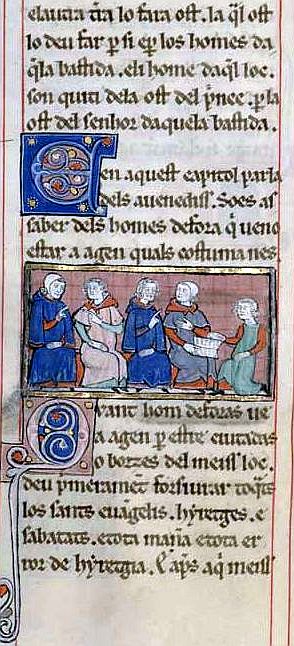 elauta tr̄a lo fara ost. la q̄l ost
lo deu far p̱ si ep̱ los homes da
q̄la bastida. eli home daq̄l loc.
son quiti dela ost del p̄nce. p̱ la
ost del senhor daquela bastida.
En aquest capitol parla
dels auenedisz. Soes as
saber dels homes defora q̄ ueno
estar a agen quals costuma nes
Quant hom deforas ue
a agen p̱ estre ciutadas
o borzes del meiss loc.
deu p̄meramēt forsiurar toq̄tz
los sants euāgelis. hyretges. e
sabatatz. etota maña etota er
ror de hyretgia. E ap̄s aq̄ meiss